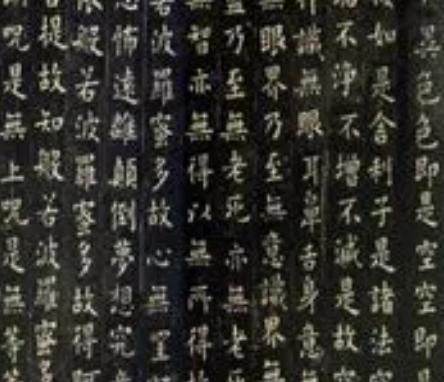 異色色即是空空即是
復如是舍利子是諸法空
垢不淨不增不減是故空
行識無眼耳鼻舌身意無
無眼界乃至無意識界無
盡乃至無老死亦無老死
無智亦無得以無所得故
若波羅蜜多故心無罣
恐怖遠離顛倒夢想究竟
依般若波羅蜜多故得阿
菩提故知般若波羅蜜多
呪是無上呪是無等等